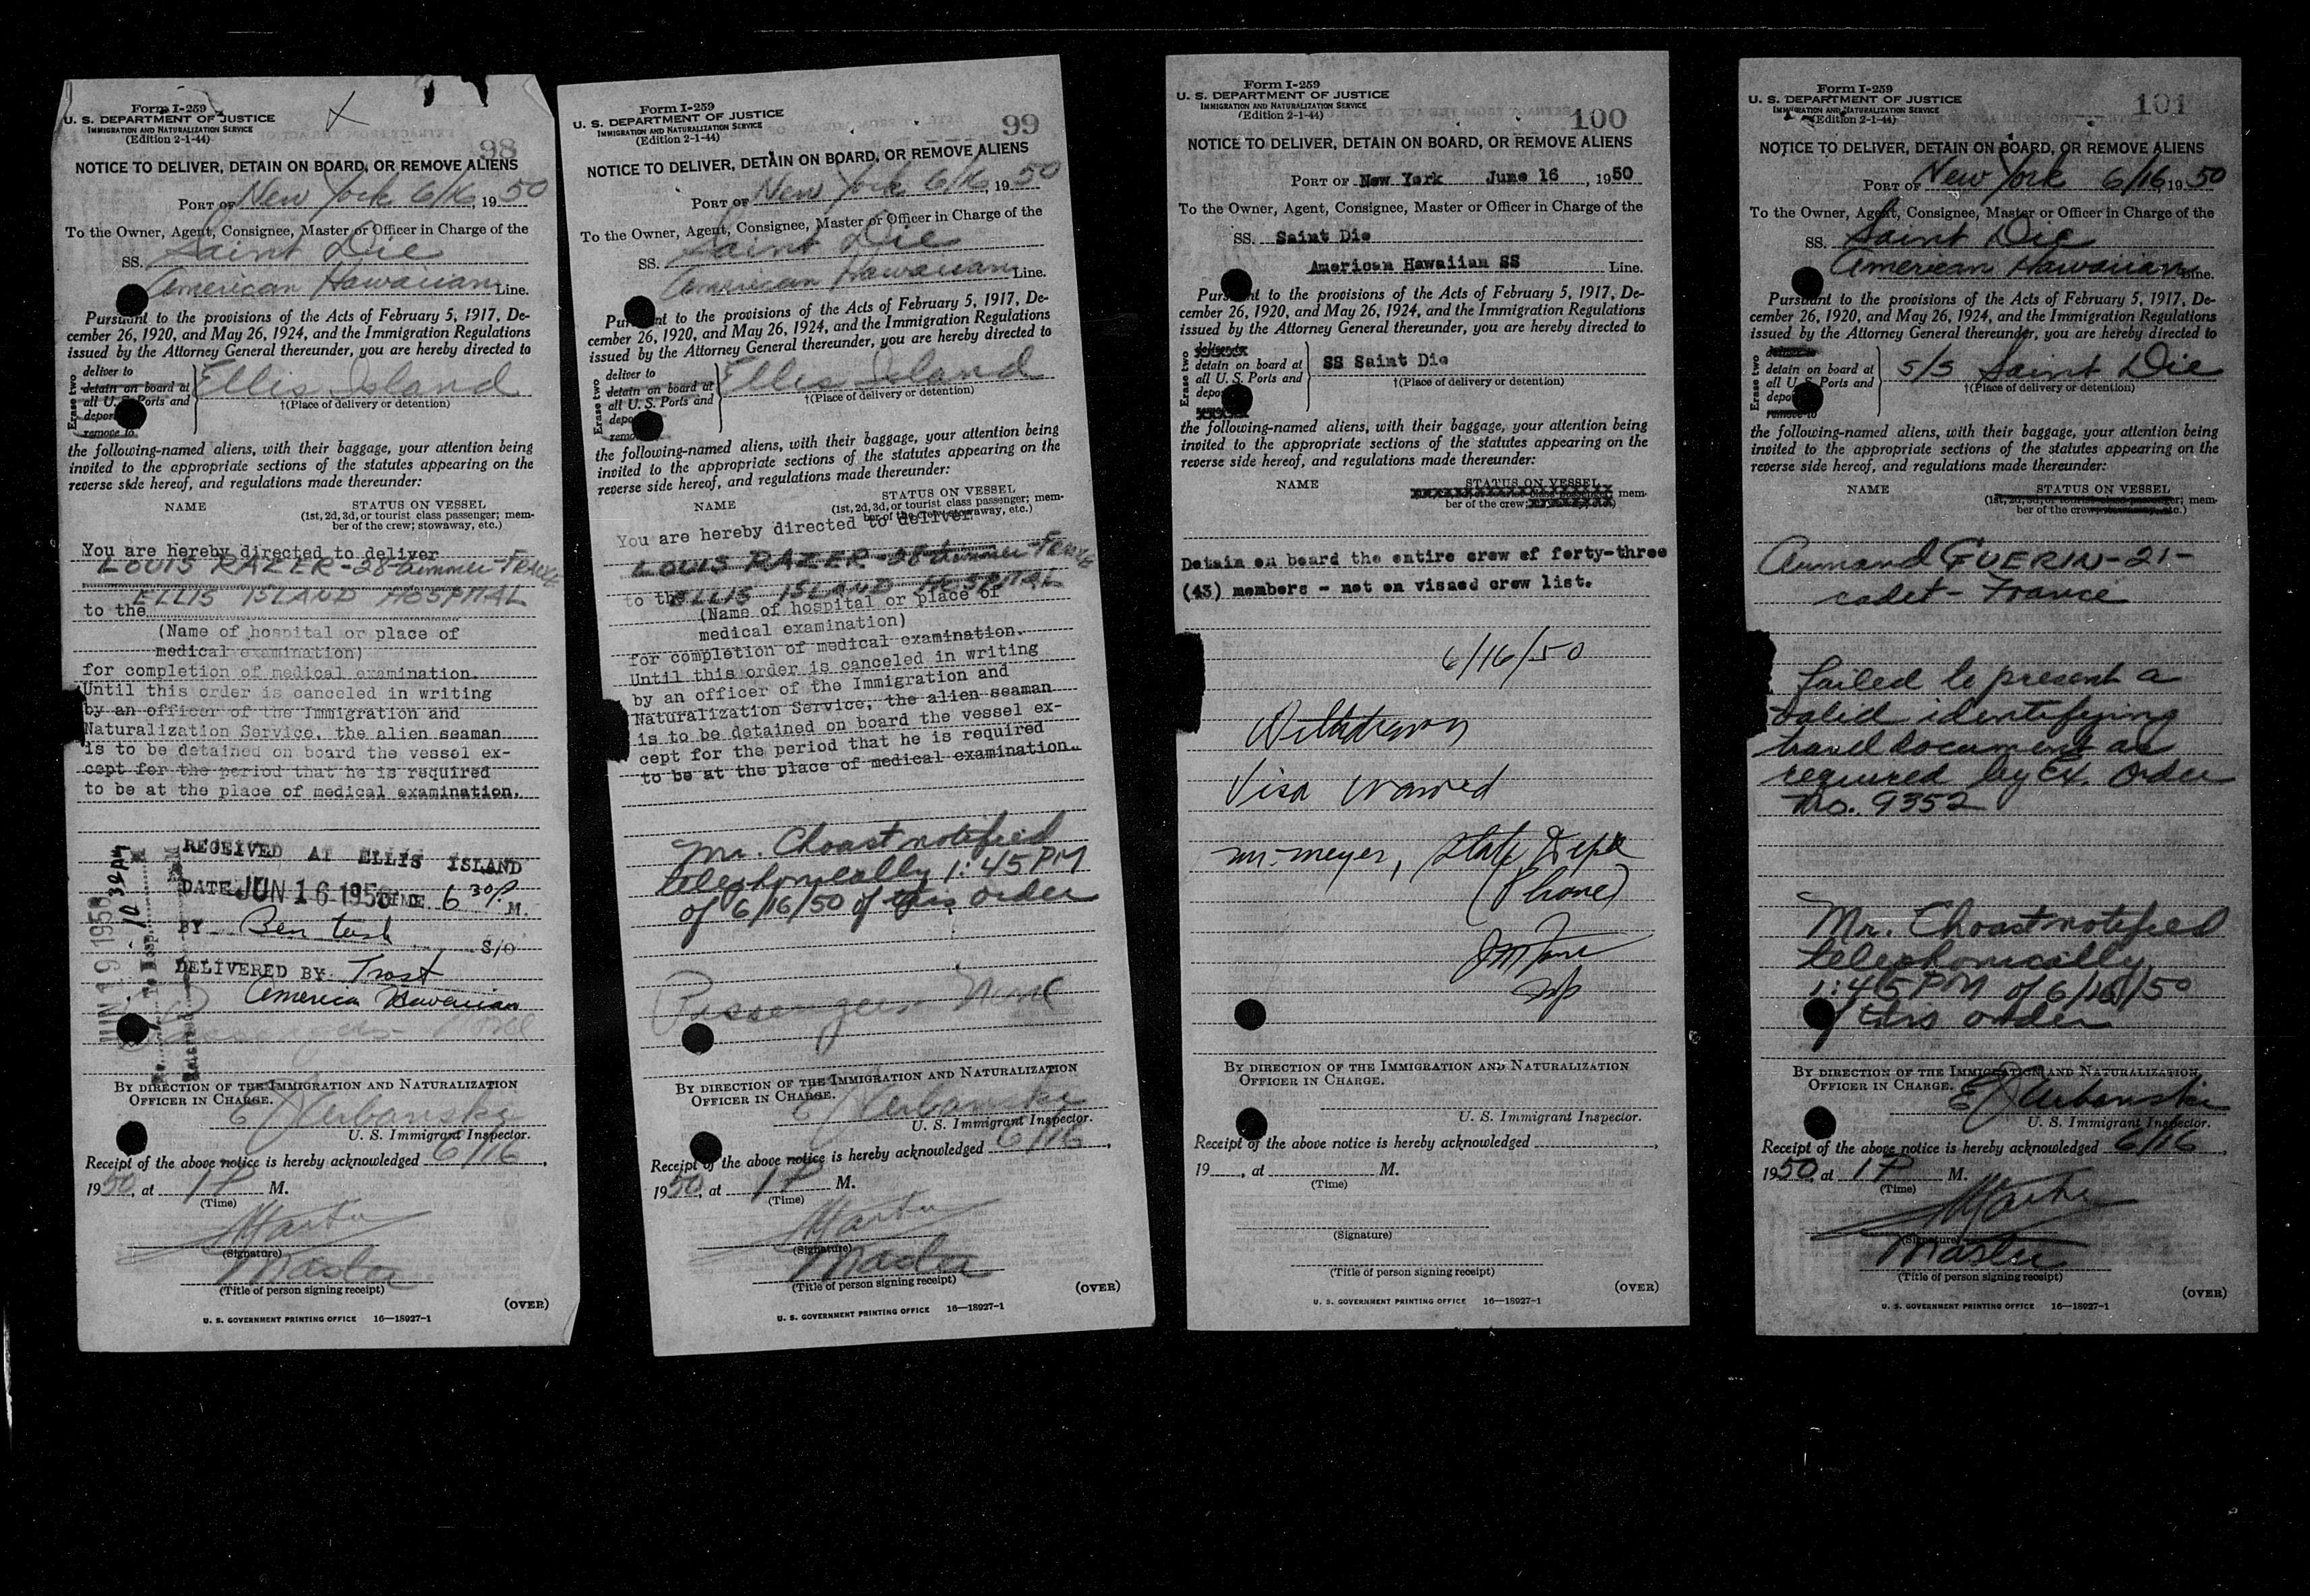 Form I-259
U. S. DEPARTMENT OF JUSTICE
IMMIGRATION AND NATURALIZATION SERVICE
(Edition 2-1-44)
98
NOTICE TO DELIVER, DETAIN ON BOARD, OR REMOVE ALIENS
PORT OF New York 6/16, 1950
To the Owner, Agent, Consignee, Master or Officer in Charge of the
SS. Saint Die
American Hawaiian Line.
Pursuant to the provisions of the Acts of February 5, 1917, De-
cember 26, 1920, and May 26, 1924, and the Immigration Regulations
issued by the Attorney General thereunder, you are hereby directed to
Erase two
deliver to
detain on board at
all U. S. Ports and
depor
remove to
Ellis Island
†(Place of delivery or detention)
the following-named aliens, with their baggage, your attention being
invited to the appropriate sections of the statutes appearing on the
reverse side hereof, and regulations made thereunder:
NAME STATUS ON VESSEL
(1st, 2d, 3d, or tourist class passenger; mem-
ber of the crew; stowaway, etc.)
You are hereby directed to deliver
LOUIS RAZER - 28 trimmer - France
to the ELLIS ISLAND HOSPITAL
(Name of hospital or place of
medical examination)
for completion of medical examination.
Until this order is canceled in writing
by an officer of the Immigration and
Naturalization Service, the alien seaman
is to be detained on board the vessel ex-
cept for the period that he is required
to be at the place of medical examination.
RECEIVED AT ELLIS ISLAND
DATE JUN 16 1950 TIME 6 30 P M.
BY Ben S/O
DELIVERED BY Trost
America Hawaiian
JUN 19 1950
10 32 AM
To Hosp.
Passengers - None
BY DIRECTION OF THE IMMIGRATION AND NATURALIZATION
OFFICER IN CHARGE.
E J Urbanski
U. S. Immigrant Inspector.
Receipt of the above notice is hereby acknowledged 6/16,
1950, at 1 P M.
(Time)
(Signature)
Master
(Title of person signing receipt)
(OVER)
U. S. GOVERNMENT PRINTING OFFICE 16—18927-1
Form I-259
U. S. DEPARTMENT OF JUSTICE
IMMIGRATION AND NATURALIZATION SERVICE
(Edition 2-1-44)
99
NOTICE TO DELIVER, DETAIN ON BOARD, OR REMOVE ALIENS
PORT OF New York 6/16, 1950
To the Owner, Agent, Consignee, Master or Officer in Charge of the
SS. Saint Die
American Hawaiian Line.
Pursuant to the provisions of the Acts of February 5, 1917, De-
cember 26, 1920, and May 26, 1924, and the Immigration Regulations
issued by the Attorney General thereunder, you are hereby directed to
Erase two
deliver to
detain on board at
all U. S. Ports and
depo
remo
Ellis Island
†(Place of delivery or detention)
the following-named aliens, with their baggage, your attention being
invited to the appropriate sections of the statutes appearing on the
reverse side hereof, and regulations made thereunder:
NAME STATUS ON VESSEL
(1st, 2d, 3d, or tourist class passenger; mem-
ber of the crew; stowaway, etc.)
You are hereby directed to deliver
LOUIS RAZER - 28 trimmer - France
to the ELLIS ISLAND HOSPITAL
(Name of hospital or place of
medical examination)
for completion of medical examination.
Until this order is canceled in writing
by an officer of the Immigration and
Naturalization Service, the alien seaman
is to be detained on board the vessel ex-
cept for the period that he is required
to be at the place of medical examination.
Mr. Choast notified
telephonically 1:45 PM
of 6/16/50 of this order
Passengers - None
BY DIRECTION OF THE IMMIGRATION AND NATURALIZATION
OFFICER IN CHARGE.
E J Urbanski
U. S. Immigrant Inspector.
Receipt of the above notice is hereby acknowledged 6/16,
1950, at 1 P M.
(Time)
(Signature)
Master
(Title of person signing receipt)
(OVER)
U. S. GOVERNMENT PRINTING OFFICE 16—18927-1
Form I-259
U. S. DEPARTMENT OF JUSTICE
IMMIGRATION AND NATURALIZATION SERVICE
(Edition 2-1-44)
100
NOTICE TO DELIVER, DETAIN ON BOARD, OR REMOVE ALIENS
PORT OF New York June 16, 1950
To the Owner, Agent, Consignee, Master or Officer in Charge of the
SS. Saint Die
American Hawaiian SS Line.
Pursuant to the provisions of the Acts of February 5, 1917, De-
cember 26, 1920, and May 26, 1924, and the Immigration Regulations
issued by the Attorney General thereunder, you are hereby directed to
Erase two
detain on board at
all U. S. Ports and
depo
SS Saint Die
†(Place of delivery or detention)
the following-named aliens, with their baggage, your attention being
invited to the appropriate sections of the statutes appearing on the
reverse side hereof, and regulations made thereunder:
NAME STATUS ON VESSEL
mem-
ber of the crew;
Detain on board the entire crew of forty-three
(43) members - not on visaed crew list.
6/16/50
Withdrawn
Visa waived
Mr. Meyer, State Dept
(Phone)
BY DIRECTION OF THE IMMIGRATION AND NATURALIZATION
OFFICER IN CHARGE.
U. S. Immigrant Inspector.
Receipt of the above notice is hereby acknowledged ,
19 , at M.
(Time)
(Signature)
(Title of person signing receipt)
(OVER)
U. S. GOVERNMENT PRINTING OFFICE 16—18927-1
Form I-259
U. S. DEPARTMENT OF JUSTICE
IMMIGRATION AND NATURALIZATION SERVICE
(Edition 2-1-44)
101
NOTICE TO DELIVER, DETAIN ON BOARD, OR REMOVE ALIENS
PORT OF New York 6/16 1950
To the Owner, Agent, Consignee, Master or Officer in Charge of the
SS. Saint Die
American Hawaiian Line.
Pursuant to the provisions of the Acts of February 5, 1917, De-
cember 26, 1920, and May 26, 1924, and the Immigration Regulations
issued by the Attorney General thereunder, you are hereby directed to
Erase two
deliver to
detain on board at
all U. S. Ports and
depo
remove to
S/S Saint Die
†(Place of delivery or detention)
the following-named aliens, with their baggage, your attention being
invited to the appropriate sections of the statutes appearing on the
reverse side hereof, and regulations made thereunder:
NAME STATUS ON VESSEL
(1st, 2d, 3d, or tourist class passenger; mem-
ber of the crew; stowaway, etc.)
Armand GUERIN - 21 -
cadet - France
failed to present a
valid identifying
travel document as
required by Ex. Order
No. 9352
Mr. Choast notified
telephonically
1:45 PM of 6/16/50
of this order
BY DIRECTION OF THE IMMIGRATION AND NATURALIZATION
OFFICER IN CHARGE.
E J Urbanski
U. S. Immigrant Inspector.
Receipt of the above notice is hereby acknowledged 6/16
1950, at 1 P M.
(Time)
(Signature)
Master
(Title of person signing receipt)
(OVER)
U. S. GOVERNMENT PRINTING OFFICE 16—18927-1